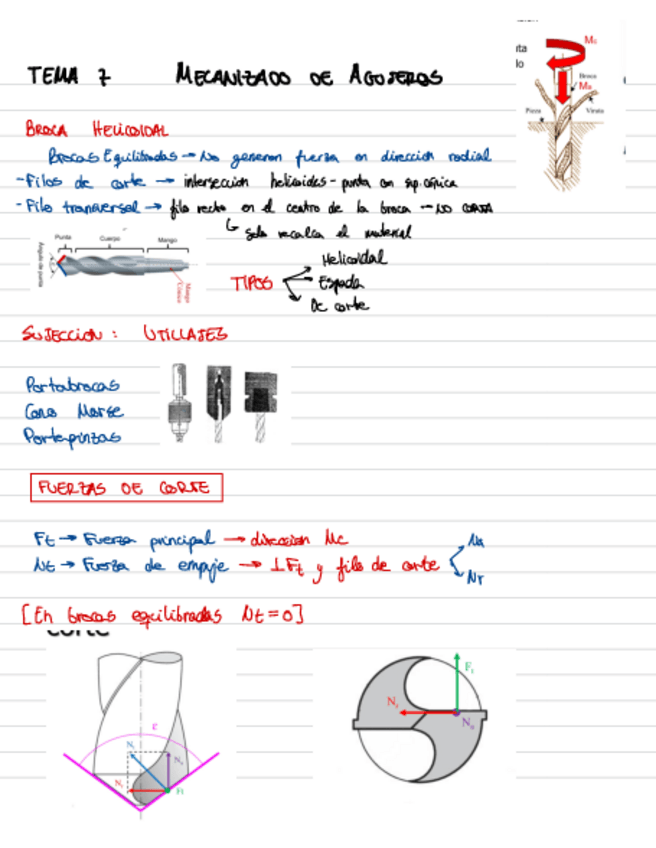 TEMA 7 MECANIZADO DE AGUJEROS
Mc
Broca
Ma
Pieza
Viruta
BROCA HELICOIDAL
Brocas Equilibradas → No generan fuerza en dirección radial
- Filos de corte → intersección helicoides - punta con sup. cónica
- Filo transversal → filo recto en el centro de la broca → NO CORTA
↳ solo recalca el material
Punta Cuerpo Mango
Angulo de punta
Mango Cónico
TIPOS
Helicoidal
Espada
De corte
SUJECCION: UTILLAJES
Portabrocas
Cono Morse
Portapinzas
FUERZAS DE CORTE
Ft → Fuerza principal → dirección Mc
Nt → Fuerza de empuje → ⊥ Ft y filo de corte
Na
Nr
[En brocas equilibradas Nt = 0]
corte
ε
Nt
Na
Nr
Ft
Ft
Nr
Na